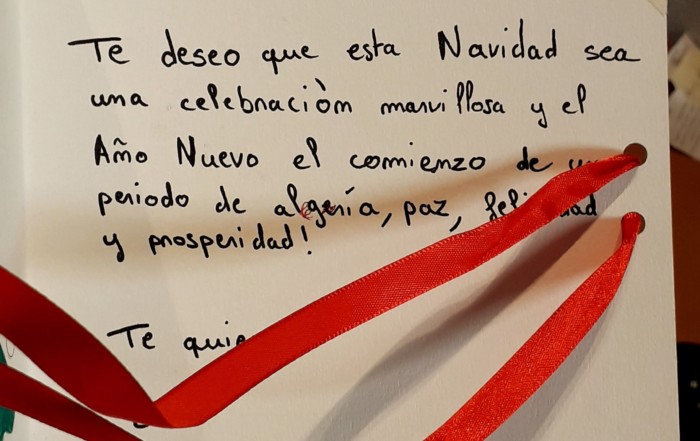 Te deseo que esta Navidad sea
una celebraciòn marvillosa y el
Año Nuevo el comienzo de
periodo de algería, paz,
y prosperidad!
Te